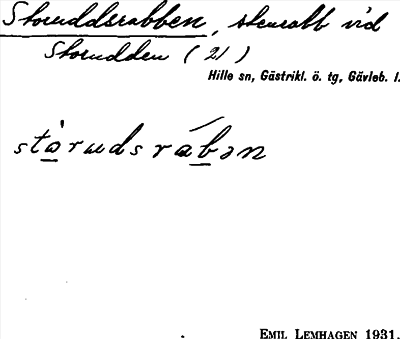 Storuddsrabben, stenrabb vid
Storudden (21)
Hille sn, Gästrikl. ö. tg, Gävleb. l.
stò̱rudsrá̱ḇən
EMIL LEMHAGEN 1931.